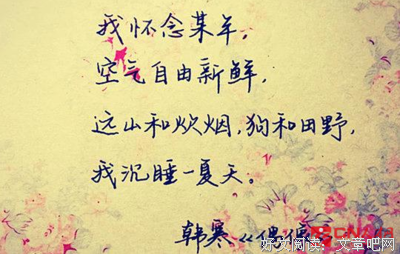 我怀念某年,
空气自由新鲜,
远山和炊烟,狗和田野,
我沉睡一夏天。
韩寒《
好文阅读:文章吧网